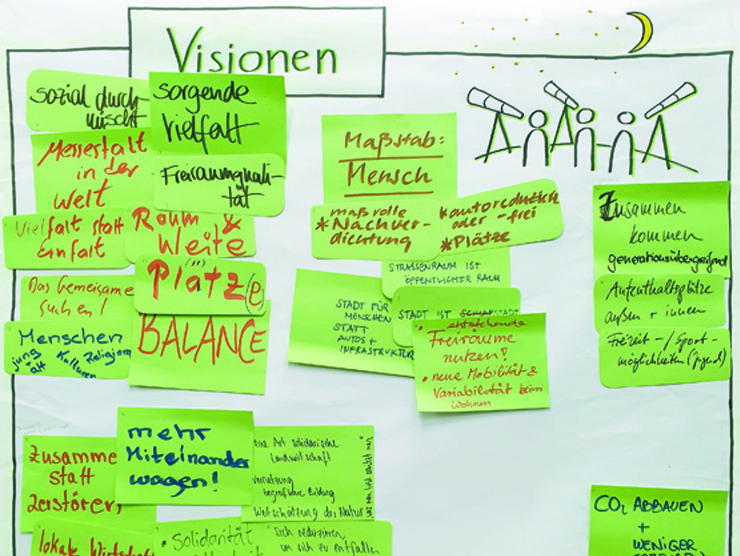 Visionen
sozial durch-
mischt
sorgende
Vielfalt
Messestalt
in der
Welt
Freiraumquali-
tät
Vielfalt statt
Einfalt
Raum &
Weite
"Platz(e)
Das Gemeinsame
suchen!
Menschen
jung
alt Kulturen Religion
BALANCE
Maßstab:
Mensch
maßvolle
*Nachver-
dichtung
*autoreduziert
oder -frei
*Plätze
STRASSENRAUM IST
ÖFFENTLICHER RAUM
STADT FÜR
MENSCHEN
STATT
AUTOS +
INFRASTRUKTUR
STADT IST
• entstehende
Freiräume
nutzen!
• neue Mobilität &
Variabilität beim
Wohnen
Zusammen
kommen
generationsübergreifend
Aufenthaltsplätze
außen + innen
Freizeit-/Sport-
möglichkeiten (Jugend)
Zusamme
statt
zerstören
mehr
Miteinander
wagen!
Art solidarische
Landwirtschaft
Vernetzung
Bildung
Wertschätzung der Natur
lokale Wirtschaft
Solidarität
Sich reduzieren
um sich zu entfalten
CO₂ ABBAUEN
+
WENIGER